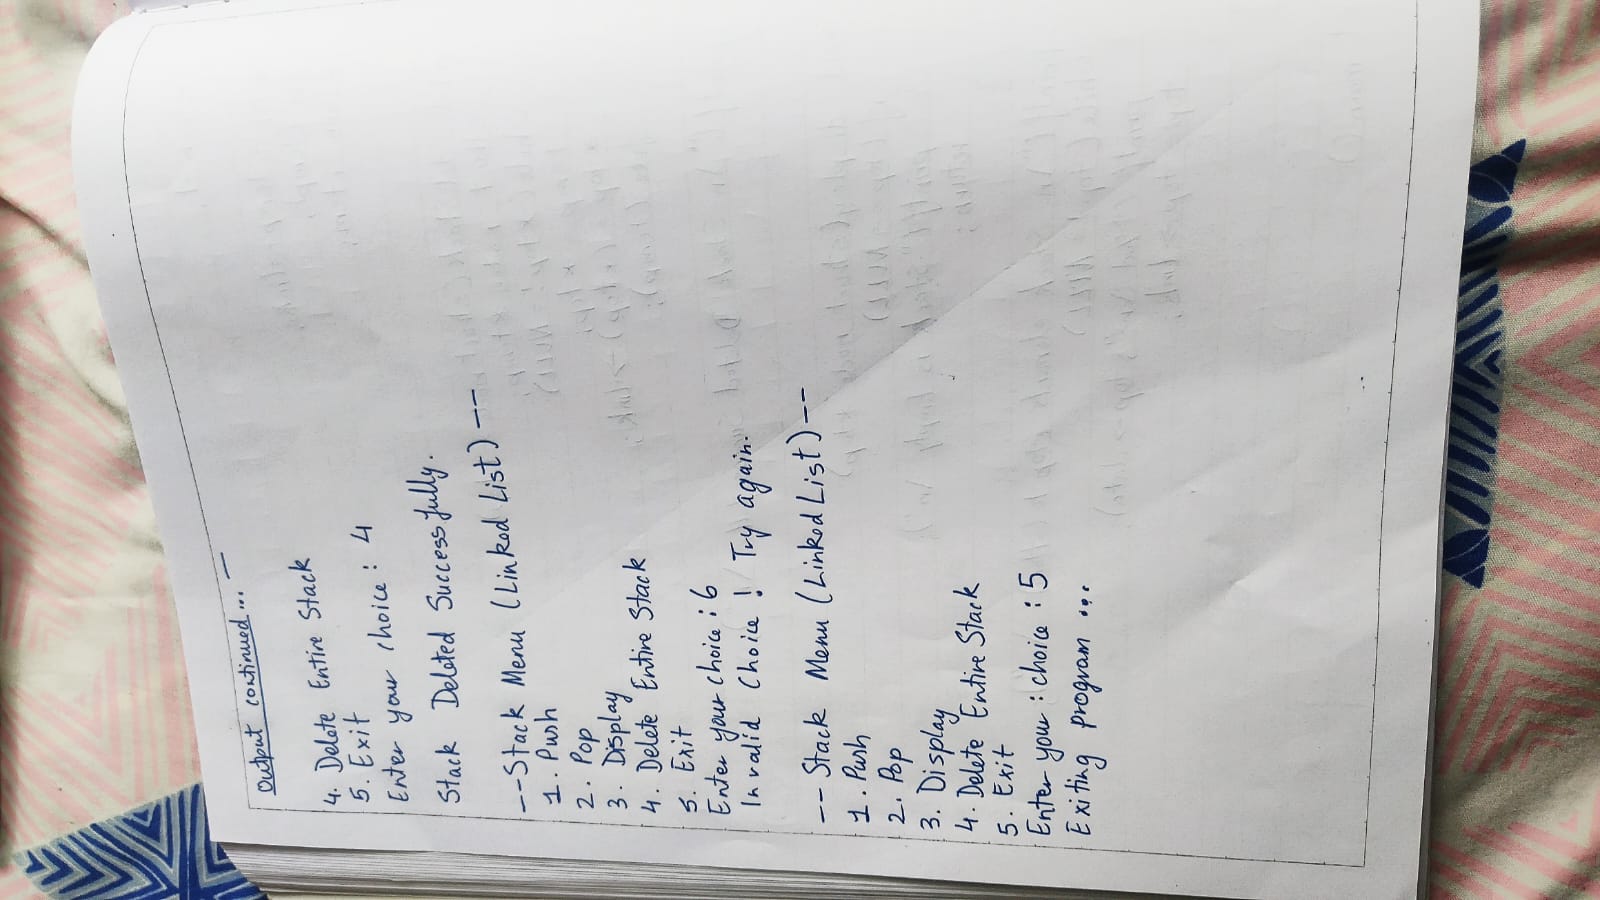 Output continued... —
4. Delete Entire Stack
5. Exit
Enter your choice : 4
Stack Deleted Successfully.
--Stack Menu (Linked List) --
1. Push
2. Pop
3. Display
4. Delete Entire Stack
5. Exit
Enter your choice : 6
Invalid Choice ! Try again.
-- Stack Menu (Linked List) --
1. Push
2. Pop
3. Display
4. Delete Entire Stack
5. Exit
Enter your : choice : 5
Exiting program ...